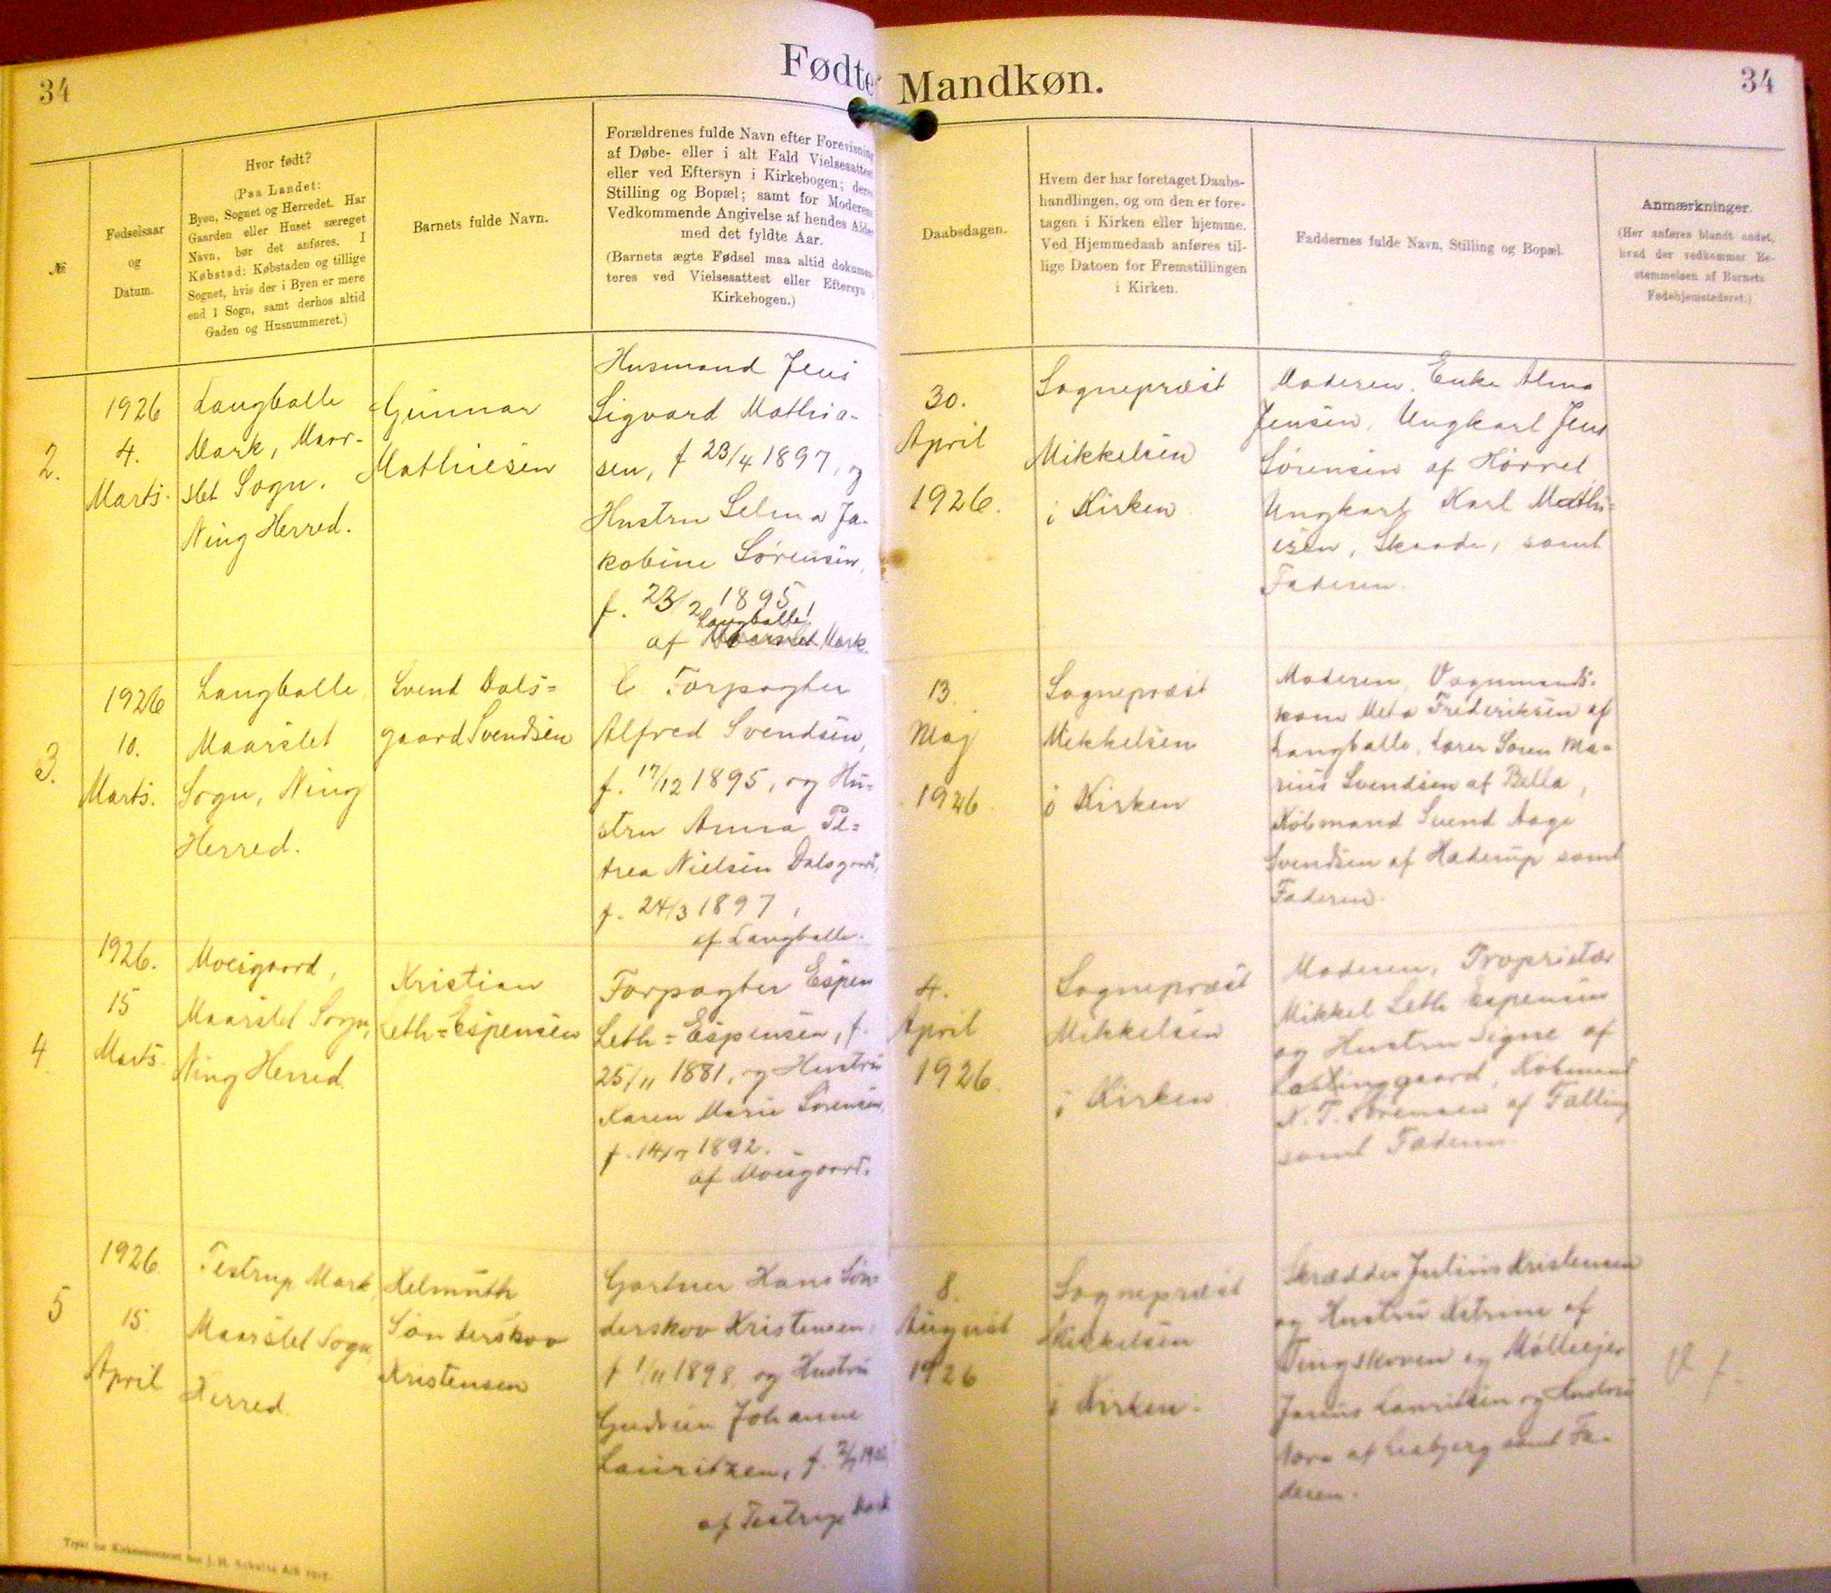 34
Fødte Mandkøn.
34
№
Fødselsaar
og
Datum.
Hvor født?
(Paa Landet:
Byen, Sognet og Herredet. Har
Gaarden eller Huset særeget
Navn, bør det anføres. I
Købstad: Købstaden og tillige
Sognet, hvis der i Byen er mere
end 1 Sogn, samt derhos altid
Gaden og Husnummeret.)
Barnets fulde Navn.
Forældrenes fulde Navn efter Forevisning
af Døbe- eller i alt Fald Vielsesattest
eller ved Eftersyn i Kirkebogen; deres
Stilling og Bopæl; samt for Moderens
Vedkommende Angivelse af hendes Alder
med det fyldte Aar.
(Barnets ægte Fødsel maa altid dokumen-
teres ved Vielsesattest eller Eftersyn i
Kirkebogen.)
Daabsdagen.
Hvem der har foretaget Daabs-
handlingen, og om den er fore-
tagen i Kirken eller hjemme.
Ved Hjemmedaab anføres til-
lige Datoen for Fremstillingen
i Kirken.
Faddernes fulde Navn, Stilling og Bopæl.
Anmærkninger.
(Her anføres blandt andet,
hvad der vedkommer Be-
stemmelsen af Barnets
Fødehjemstedsret.)
2.
1926
4.
Marts.
Langballe
Mark, Maar-
slet Sogn.
Ning Herred.
Gunnar
Mathiesen
Husmand Jens
Sigvard Mathia-
sen, f 23/4 1897, og
Hustru Selma Ja-
kobine Sørensen,
f. 23/2 1895,
Langballe
af Maarslet Mark.
30.
April
1926.
Sognepræst
Mikkelsen
i Kirken
Moderen, Enke Alma
Jensen, Ungkarl Jens
Sørensen af Hørret
Ungkarl Karl Mathi-
esen, Skaade, samt
Faderen.
3.
1926
10.
Marts.
Langballe
Maarslet
Sogn, Ning
Herred.
Svend Dals=
gaard Svendsen
Forpagter
Alfred Svendsen,
f. 17/12 1895, og Hu-
stru Anna Pe=
trea Nielsen Dalsgaard,
f. 24/3 1897,
af Langballe.
13.
Maj
1926.
Sognepræst
Mikkelsen
i Kirken
Moderen, Vognmands-
kone Meta Frederiksen af
Langballe, Lærer Søren Ma-
rius Svendsen af Bella,
Købmand Svend Aage
Svendsen af Haderup samt
Faderen.
4.
1926.
15
Marts.
Moesgaard,
Maarslet Sogn,
Ning Herred.
Kristian
Leth=Espensen
Forpagter Espen
Leth=Espensen, f.
25/11 1881, og Hustru
Karen Marie Sørensen,
f. 14/7 1892.
af Moesgaard.
4.
April
1926.
Sognepræst
Mikkelsen
i Kirken
Moderen, Proprietær
Mikkel Leth Espensen
og Hustru Signe af
Købmand
N. P. Sørensen af Falling
samt Faderen
5
1926.
15
April
Testrup Mark,
Maarslet Sogn,
Herred.
Helmuth
Sønderskov
Kristensen
Gartner Hans Søn-
derskov Kristensen,
f 1/11 1898, og Hustru
Gudrun Johanne
Lauritzen, f.
af Testrup Mark
8.
August
1926
Sognepræst
Mikkelsen
i Kirken.
Skrædder Julius Kristensen
og Hustru Katrine af
Tingskoven og Mølleejer
Lauritsen og Hustru
af Lisbjerg samt Fa-
deren.